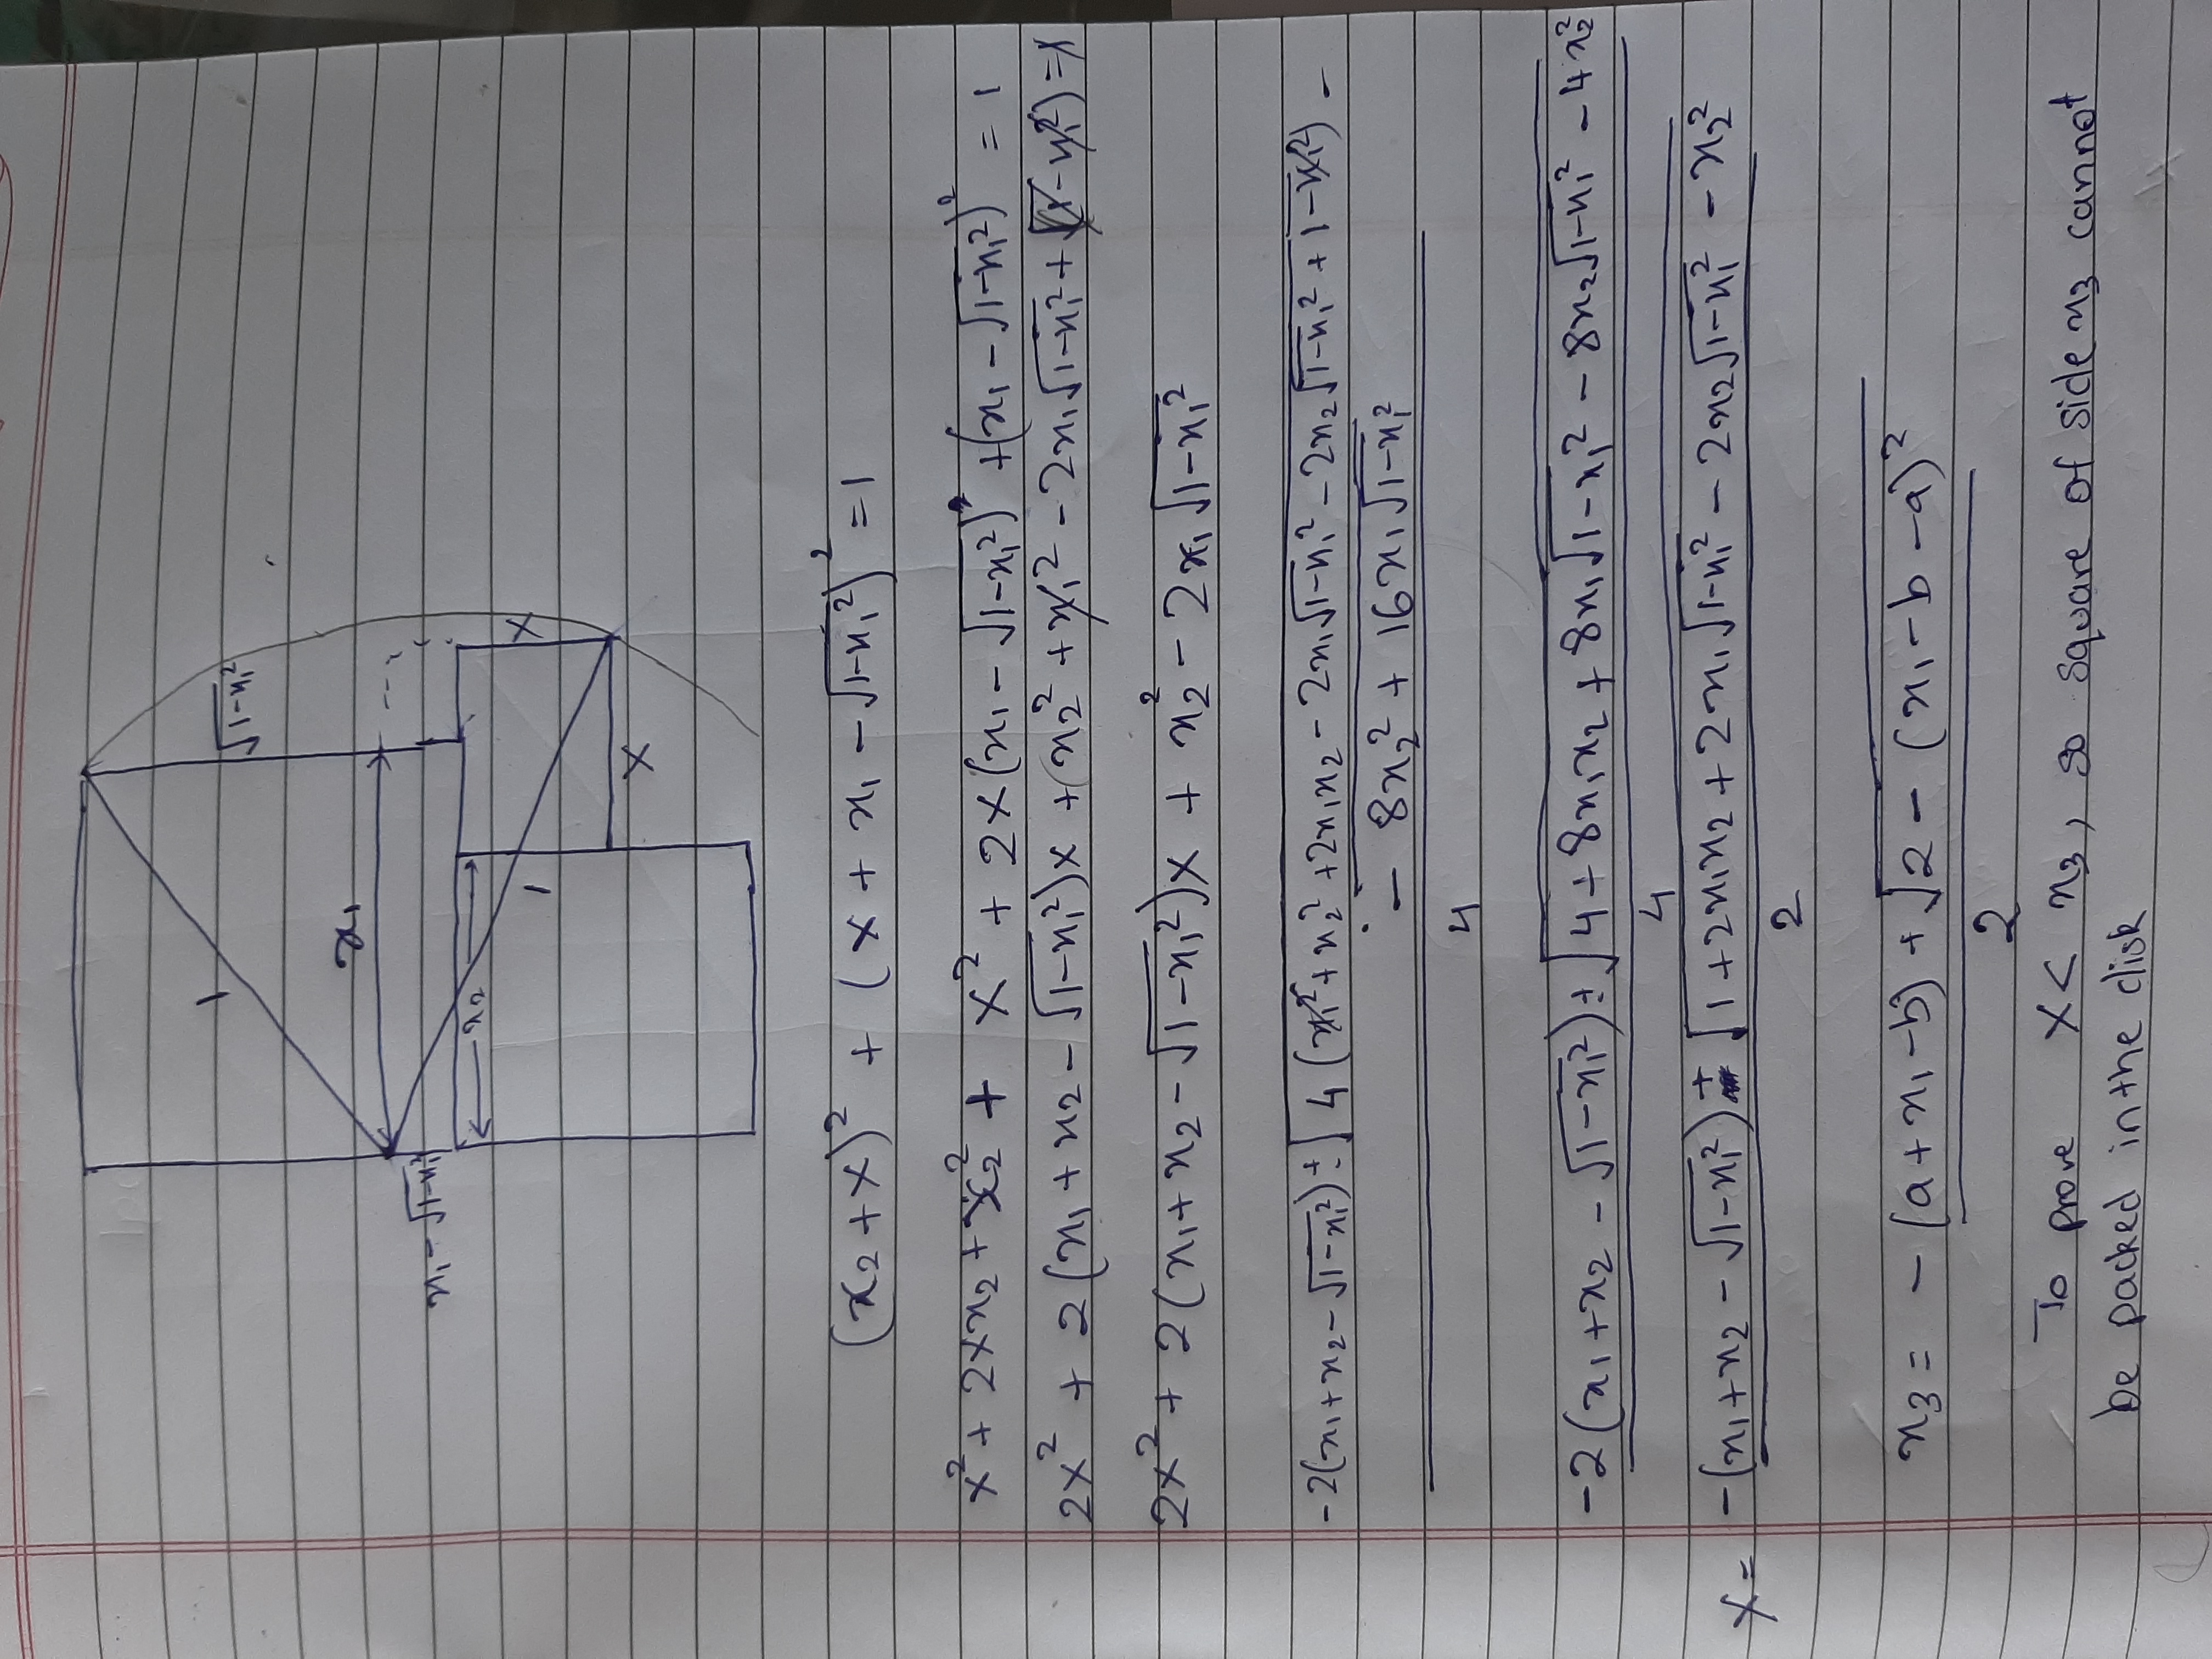 1
√1-x₁²
x₁
x₁ - √1-x₁²
x₂
1
x
x
(x₂+x)² + (x + x₁ - √1-x₁²)² = 1
x² + 2xx₂ + x₂² + x² + 2x(x₁ - √1-x₁²) + (x₁ - √1-x₁²)² = 1
2x² + 2(x₁ + x₂ - √1-x₁²)x + (x₂² + x₁² - 2x₁√1-x₁² + 1 - x₁²) = 1
2x² + 2(x₁+x₂ - √1-x₁²)x + x₂² - 2x₁√1-x₁²
-2(x₁+x₂-√1-x₁²) ± √4(x₁²+x₂²+2x₁x₂ - 2x₁√1-x₁² - 2x₂√1-x₁² + 1-x₁²) -
- 8x₂² + 16x₁√1-x₁²
4
-2(x₁+x₂ - √1-x₁²) ± √4+8x₁x₂ + 8x₁√1-x₁² - 8x₂√1-x₁² - 4x₂²
4
x = -(x₁+x₂ - √1-x₁²) ± √1+2x₁x₂+2x₁√1-x₁² - 2x₂√1-x₁² - x₂²
2
x₃ = -(a+x₁-b) + √2-(x₁-b-a)²
2
To prove x < x₃, so square of side x₃ cannot
be packed in the disk